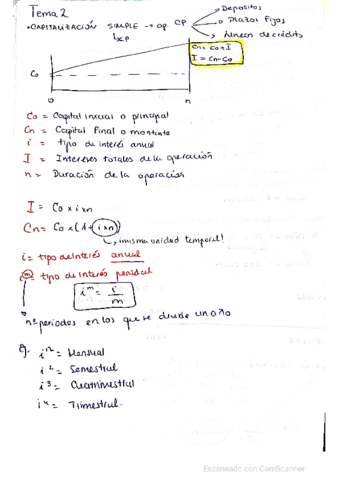 Tema 2
• CAPITALIZACIÓN SIMPLE → op. CP
→ Depositos
→ Plazos fijos
→ Líneas de crédito
↳ <CP
Cn = Co + I
I = Cn - Co
Co
0
n
Co = Capital inicial o principal
Cn = Capital Final o montante
i = tipo de interés anual
I = Intereses totales de la operación
n = Duración de la operación
I = Co x i x n
Cn = Co x (1 + i x n)
↳ ¡misma unidad temporal!
i = tipo de interés anual
i m = tipo de interés periodal
i^m = i/m
nº periodos en los que se divide un año
Ej. i^12 = Mensual
i^2 = Semestral
i^3 = Cuatrimestral
i^4 = Trimestral.
Escaneado con CamScanner